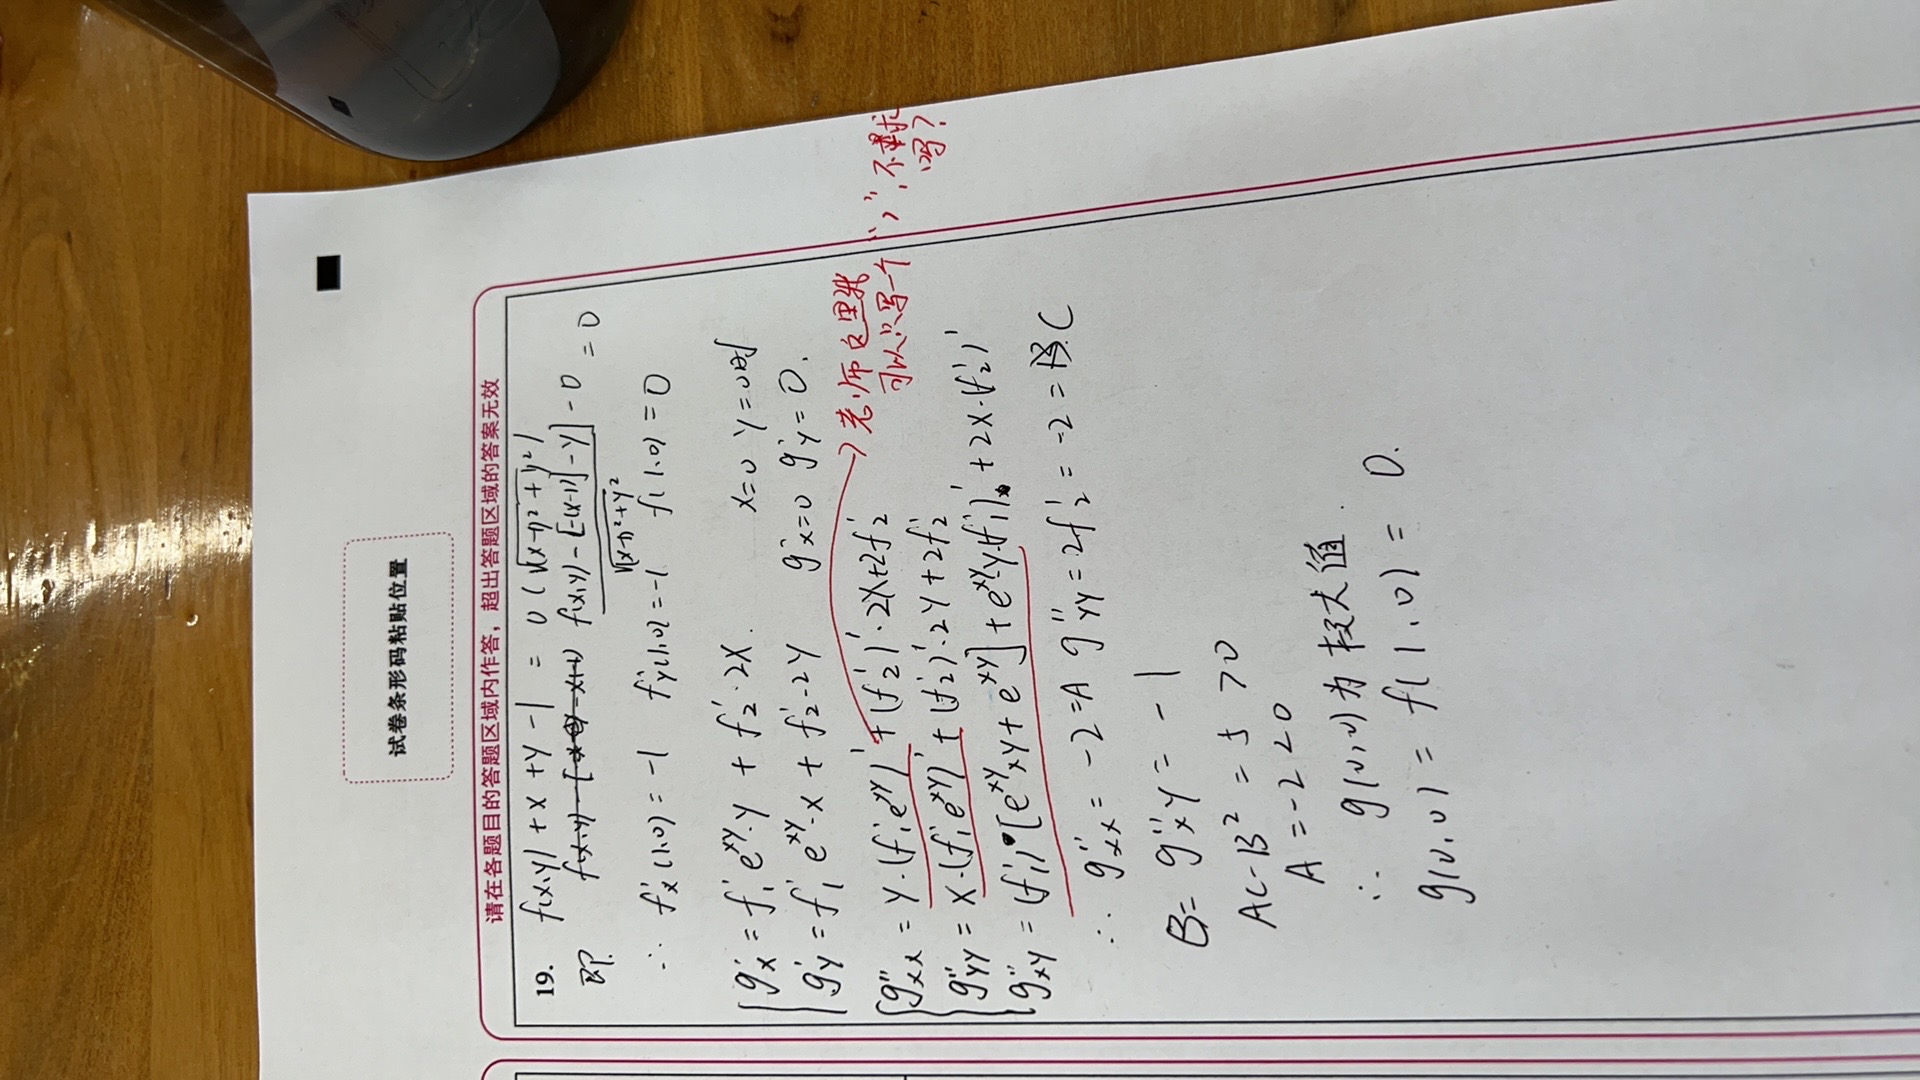 试卷条形码粘贴位置
请在各题目的答题区域内作答，超出答题区域的答案无效
19. f(x,y)+x+y-1 = 0(√(x-1)²+y²)
即 f(x,y)-[-(x-1)]-y]-0 = 0
√(x-1)²+y²
∴ f'x(1,0)=-1 f'y(1,0)=-1 f(1,0)=0
{ g'x = f'1 e^xy·y + f'2·2x. x=0 y=0时
g'y = f'1 e^xy·x + f'2·2y g'x=0 g'y=0.
→ 老师这里我可以只写一个“'”,不累求吗?
{ g''xx = y·(f'1 e^xy)' + (f'2)'·2x+2f'2
g''yy = x·(f'1 e^xy)' + (f'2)'·2y+2f'2
g''xy = (f'1)·[e^xy xy + e^xy] + e^xy·y(f'1)' + 2x·(f'2)'
∴ g''xx = -2=A g''yy = 2f'2 = -2 = C
B = g''xy = -1
AC-B² = 5 >0
A = -2<0
∴ g(0,0)为极大值.
g(0,0) = f(1,0) = 0.